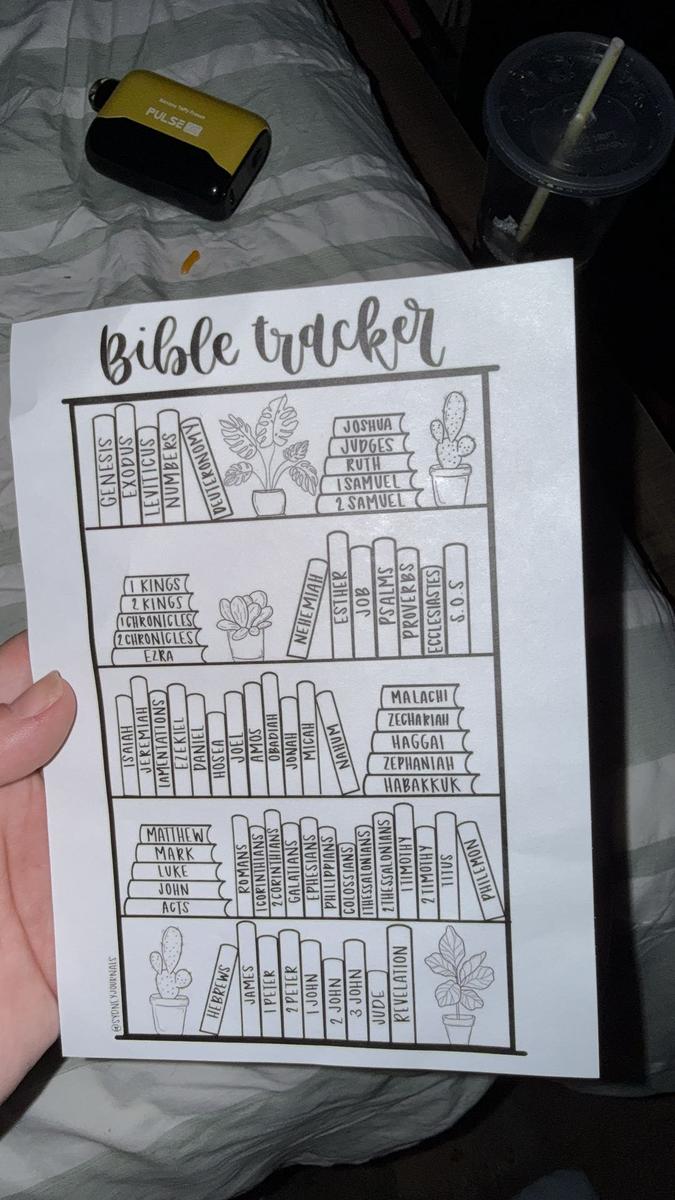 Banana Taffy Freeze
PULSE
Bible tracker
GENESIS
EXODUS
LEVITICUS
NUMBERS
DEUTERONOMY
JOSHUA
JUDGES
RUTH
1 SAMUEL
2 SAMUEL
1 KINGS
2 KINGS
1 CHRONICLES
2 CHRONICLES
EZRA
NEHEMIAH
ESTHER
JOB
PSALMS
PROVERBS
ECCLESIASTES
S.O.S
ISAIAH
JEREMIAH
LAMENTATIONS
EZEKIEL
DANIEL
HOSEA
JOEL
AMOS
OBADIAH
JONAH
MICAH
NAHUM
MALACHI
ZECHARIAH
HAGGAI
ZEPHANIAH
HABAKKUK
MATTHEW
MARK
LUKE
JOHN
ACTS
ROMANS
1 CORINTHIANS
2 CORINTHIANS
GALATIANS
EPHESIANS
PHILIPPIANS
COLOSSIANS
1 THESSALONIANS
2 THESSALONIANS
1 TIMOTHY
2 TIMOTHY
TITUS
PHILEMON
HEBREWS
JAMES
1 PETER
2 PETER
1 JOHN
2 JOHN
3 JOHN
JUDE
REVELATION
@SYDNEYJOURNALS